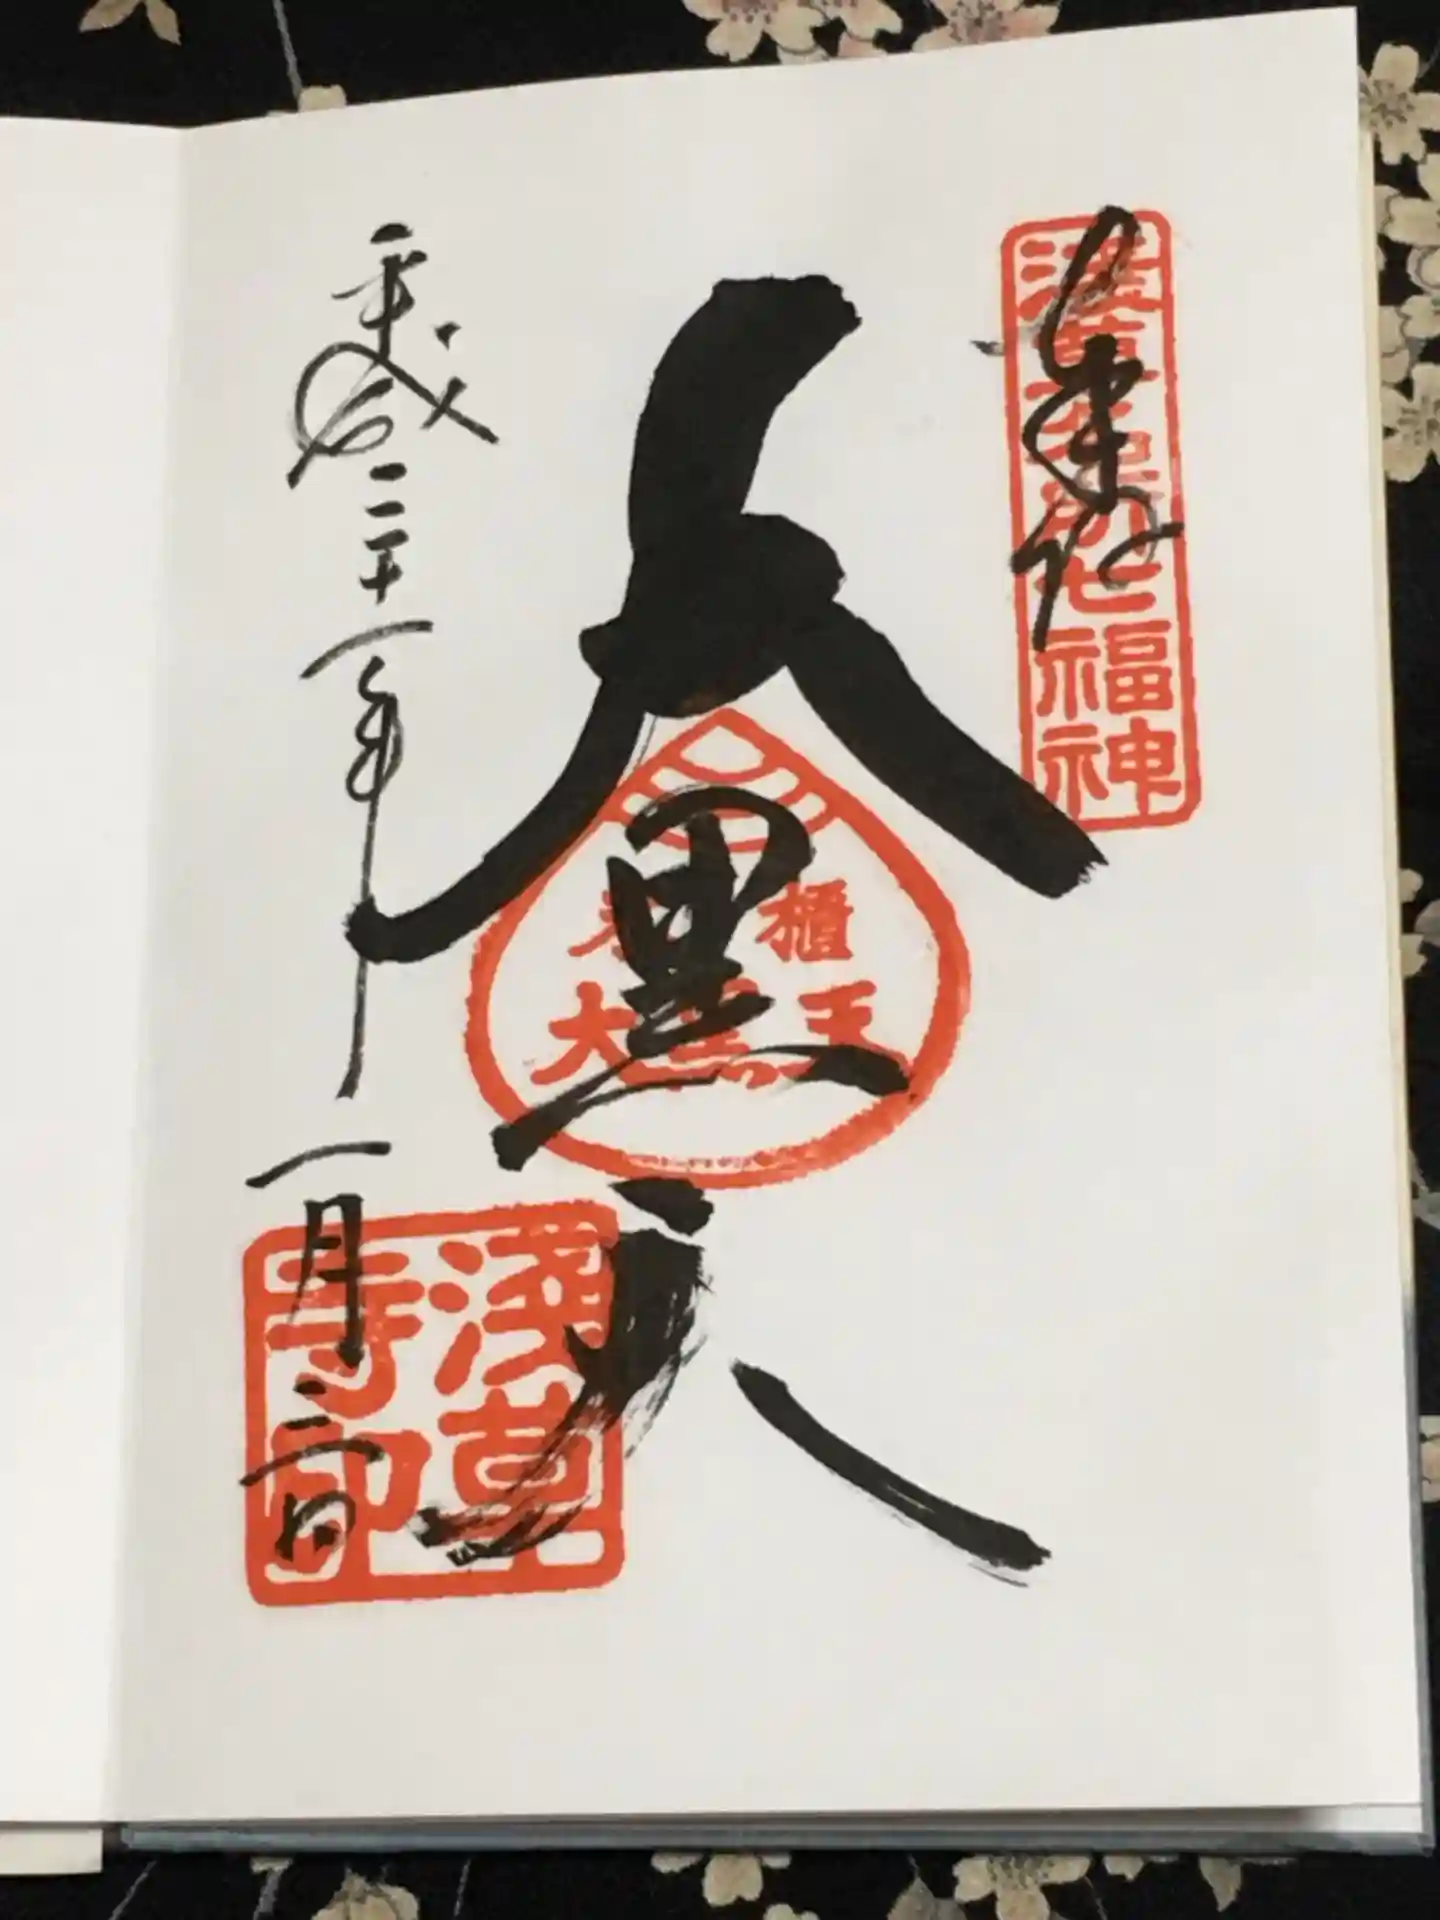 奉拝
浅草名所七福神
大黒天
米櫃
大黒天
平成三十一年一月二日
浅草寺印